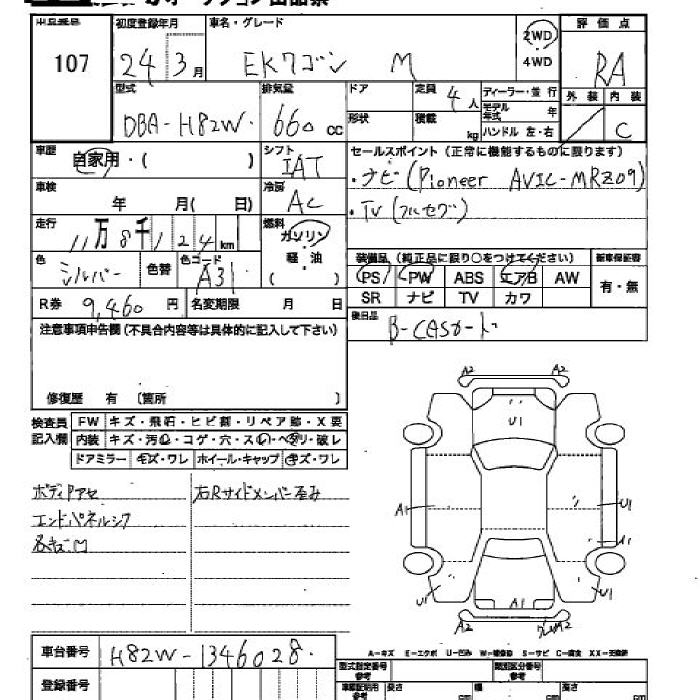 107
初度登録年月
24 3月
車名・グレード
EKワゴン M
2WD
4WD
評価点
RA
外装 内装
C
型式
DBA-H82W
排気量
660 cc
ドア
形状
定員
4人
積載
kg
ディーラー・並行
モデル年式 年
ハンドル 左・右
車歴
自家用・( )
シフト
IAT
セールスポイント (正常に機能するものに限ります)
・ナビ(Pioneer AVIC-MRZ09)
・TV (フルセグ)
車検
年 月( 日)
冷房
AC
走行
11万8千124 km
燃料
ガソリン
軽・油
( )
色
シルバー
色替
色コード
A31
装備品 (純正品に限り○をつけてください)
新車保証書
PS PW ABS エアB AW
SR ナビ TV カワ
有・無
R券 9,460 円
名変期限 月 日
後日品
B-CASカード
注意事項申告欄(不具合内容等は具体的に記入して下さい)
修復歴 有 〔箇所 〕
検査員
記入欄
FW キズ・飛石・ヒビ割・リペア跡・X要
内装 キズ・汚レ・コゲ・穴・スレ・ヘタリ・破レ
ドアミラー キズ・ワレ ホイール・キャップ キズ・ワレ
右Rサイドメンバー歪み
A2 A2
U1
A1 U1
A1
U1 U1
A1
A2 A2
A-キズ E-エクボ U-凹み W-補修跡 S-サビ C-腐食 XX-交換済
車台番号 H82W-1346028
登録番号
型式指定番号
参考
類別区分番号
参考
長さ cm
幅 cm
高さ cm